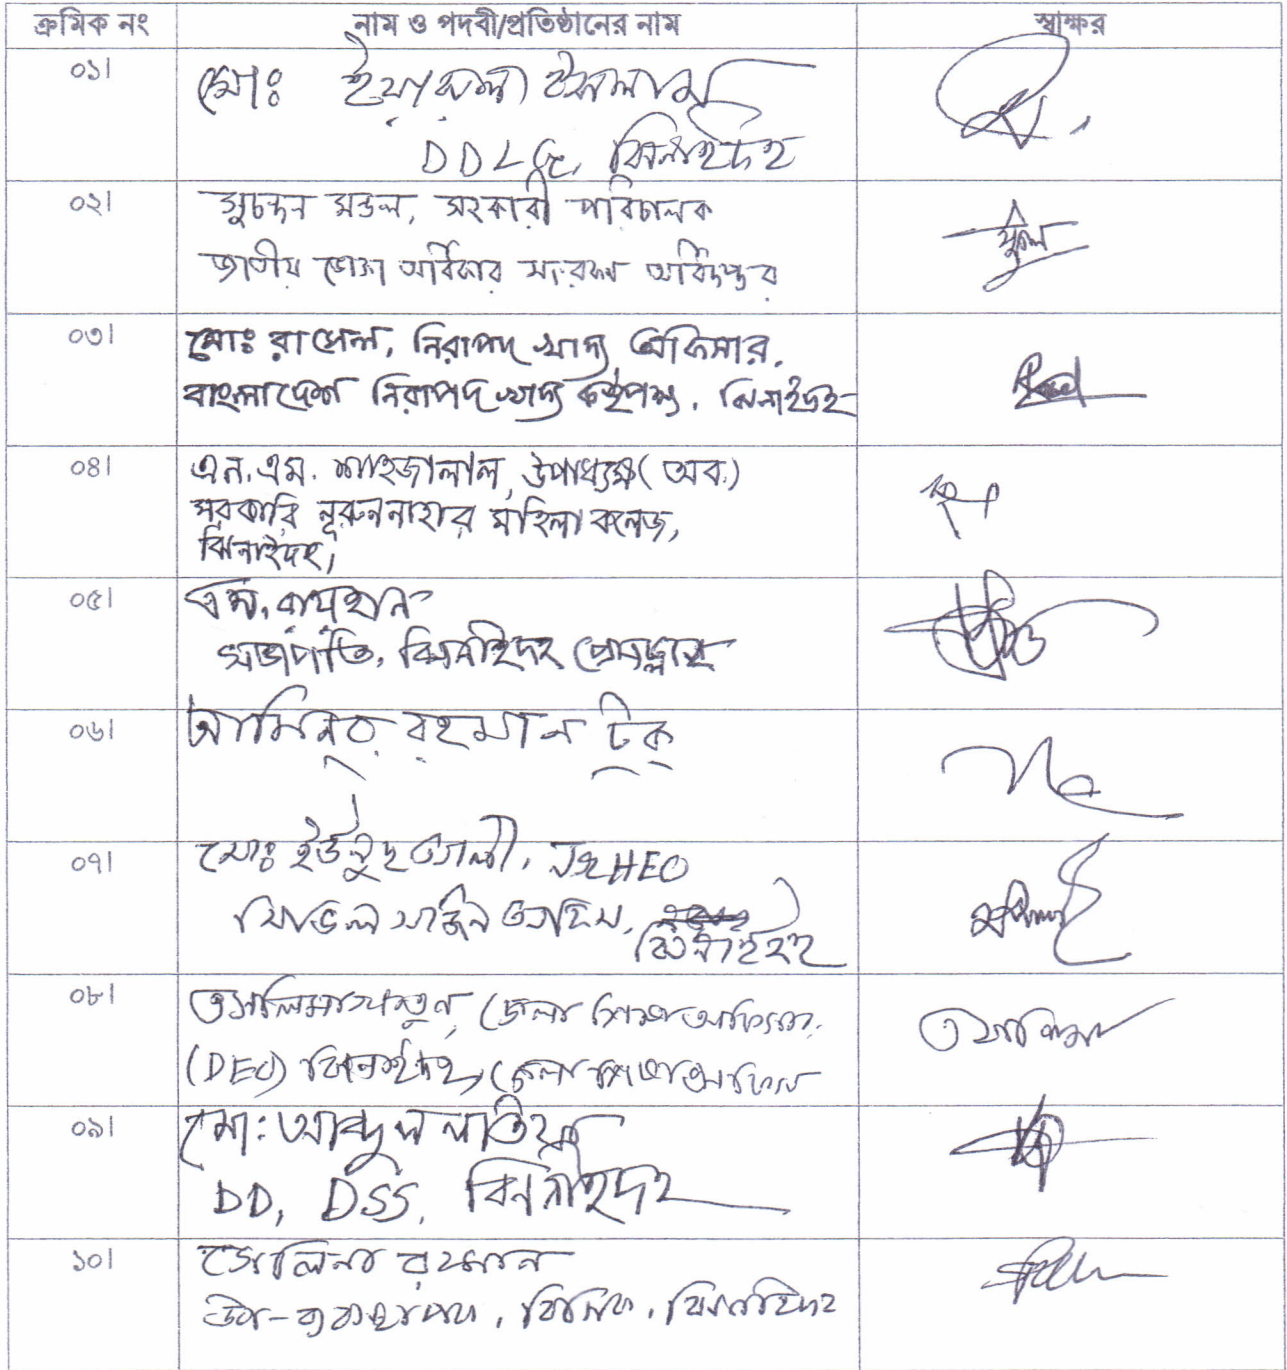 ক্রমিক নং নাম ও পদবী/প্রতিষ্ঠানের নাম স্বাক্ষর
০১। মোঃ ইয়ারুল ইসলাম
DDLG, ঝিনাইদহ
০২। সুচন্দন মন্ডল, সহকারী পরিচালক
জাতীয় ভোক্তা অধিকার সংরক্ষণ অধিদপ্তর
০৩। মোঃ রাসেল, নিরাপদ খাদ্য অফিসার,
বাংলাদেশ নিরাপদ খাদ্য কর্তৃপক্ষ, ঝিনাইদহ
০৪। এন.এম. শাহজালাল, উপাধ্যক্ষ (অব.)
সরকারি নূরুননাহার মহিলা কলেজ,
ঝিনাইদহ,
০৫। এম. রায়হান
সভাপতি, ঝিনাইদহ প্রেসক্লাব
০৬। আমিনুর রহমান টুকু
০৭। মোঃ ইউনুছ আলী, HEO
সিভিল সার্জন অফিস,
ঝিনাইদহ
০৮। জেলা শিক্ষা অফিসার,
(DEO) ঝিনাইদহ, জেলা শিক্ষা অফিস
০৯। মো: আব্দুল লতিফ
DD, DSS, ঝিনাইদহ
১০। সেলিনা রহমান
উপ-ব্যবস্থাপক, বিসিক, ঝিনাইদহ